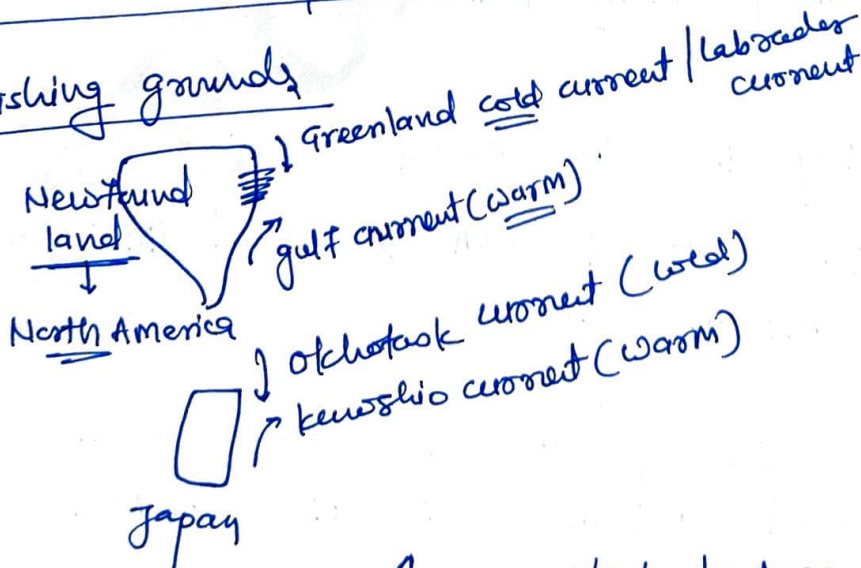 ishing grounds
Greenland cold current / Labrador
current
Newfound
land
gulf current (warm)
North America
okhotask current (cold)
kuroshio current (warm)
Japan